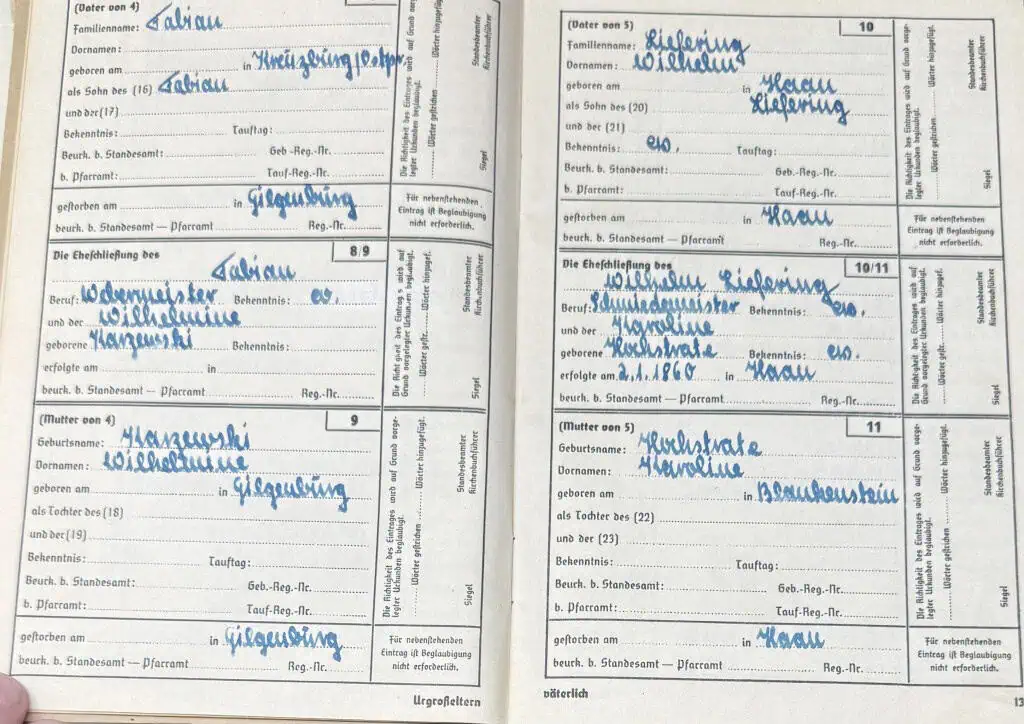 (Vater von 4)
Familienname: Fabian
Vornamen:
geboren am in Kreuzburg/Ostpr.
als Sohn des (16) Fabian
und der (17)
Bekenntnis: Tauftag:
Beurk. b. Standesamt: Geb.-Reg.-Nr.
b. Pfarramt: Tauf-Reg.-Nr.
Die Richtigkeit des Eintrages wird auf Grund vorge-
legter Urkunden beglaubigt.
Wörter gestrichen Wörter hinzugefügt.
Standesbeamter
Kirchenbuchführer
Siegel
gestorben am in Gilgenburg
beurk. b. Standesamt — Pfarramt Reg.-Nr.
Für nebenstehenden
Eintrag ist Beglaubigung
nicht erforderlich.
Die Eheschließung des 8/9
Fabian
Beruf: Webermeister Bekenntnis: ev.
und der Wilhelmine
geborene Karzewski Bekenntnis:
erfolgte am in
beurk. b. Standesamt — Pfarramt Reg.-Nr.
Die Richtigkeit des Eintrages wird auf
Grund vorgelegter Urkunden beglaubigt.
Wörter gestr. Wörter hinzugef.
Standesbeamter
Kirchenbuchführer
Siegel
(Mutter von 4) 9
Geburtsname: Karzewski
Vornamen: Wilhelmine
geboren am in Gilgenburg
als Tochter des (18)
und der (19)
Bekenntnis: Tauftag:
Beurk. b. Standesamt: Geb.-Reg.-Nr.
b. Pfarramt: Tauf-Reg.-Nr.
Die Richtigkeit des Eintrages wird auf Grund vorge-
legter Urkunden beglaubigt.
Wörter gestrichen Wörter hinzugefügt.
Standesbeamter
Kirchenbuchführer
Siegel
gestorben am in Gilgenburg
beurk. b. Standesamt — Pfarramt Reg.-Nr.
Für nebenstehenden
Eintrag ist Beglaubigung
nicht erforderlich.
Urgroßeltern
(Vater von 5) 10
Familienname: Liefering
Vornamen: Wilhelm
geboren am in Haan
als Sohn des (20) Liefering
und der (21)
Bekenntnis: ev. Tauftag:
Beurk. b. Standesamt: Geb.-Reg.-Nr.
b. Pfarramt: Tauf-Reg.-Nr.
Die Richtigkeit des Eintrages wird auf Grund vorge-
legter Urkunden beglaubigt.
Wörter gestrichen Wörter hinzugefügt.
Standesbeamter
Kirchenbuchführer
Siegel
gestorben am in Haan
beurk. b. Standesamt — Pfarramt Reg.-Nr.
Für nebenstehenden
Eintrag ist Beglaubigung
nicht erforderlich.
Die Eheschließung des 10/11
Wilhelm Liefering
Beruf: Schmiedemeister Bekenntnis: ev.
und der Karoline
geborene Hochstrate Bekenntnis: ev.
erfolgte am 2.1.1860 in Haan
beurk. b. Standesamt — Pfarramt Reg.-Nr.
Die Richtigkeit des Eintrages wird auf
Grund vorgelegter Urkunden beglaubigt.
Wörter gestr. Wörter hinzugef.
Standesbeamter
Kirchenbuchführer
Siegel
(Mutter von 5) 11
Geburtsname: Hochstrate
Vornamen: Karoline
geboren am in Blankenstein
als Tochter des (22)
und der (23)
Bekenntnis: Tauftag:
Beurk. b. Standesamt: Geb.-Reg.-Nr.
b. Pfarramt: Tauf-Reg.-Nr.
Die Richtigkeit des Eintrages wird auf Grund vorge-
legter Urkunden beglaubigt.
Wörter gestrichen Wörter hinzugefügt.
Standesbeamter
Kirchenbuchführer
Siegel
gestorben am in Haan
beurk. b. Standesamt — Pfarramt Reg.-Nr.
Für nebenstehenden
Eintrag ist Beglaubigung
nicht erforderlich.
väterlich
13